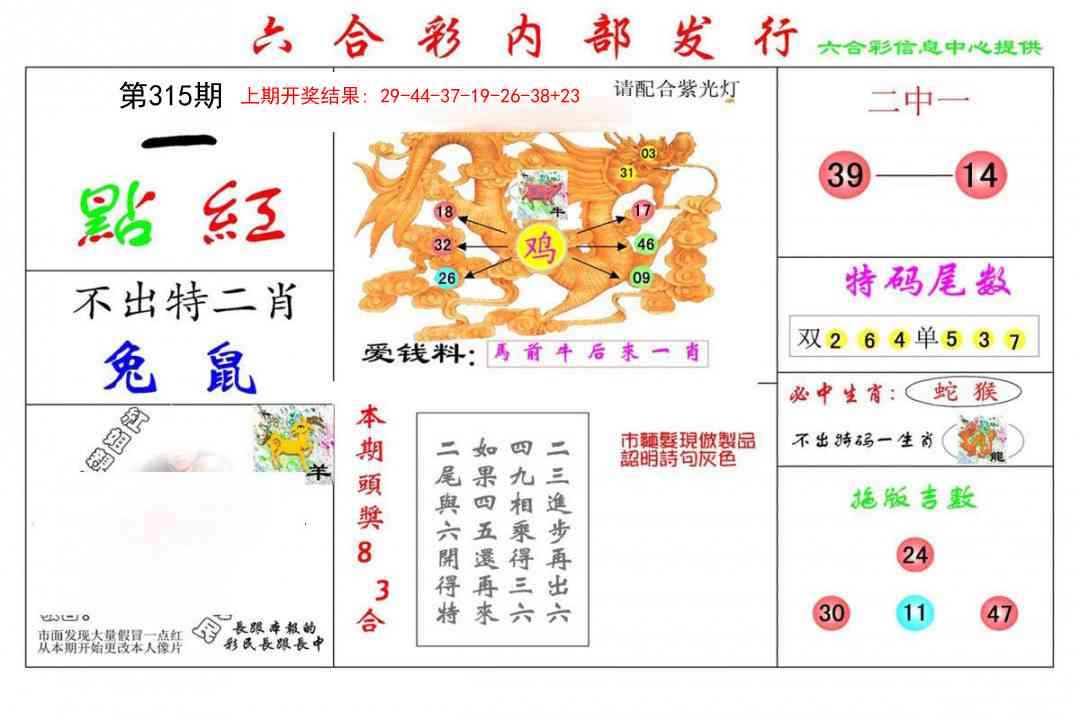 六合彩内部发行
六合彩信息中心提供
第315期
上期开奖结果：29-44-37-19-26-38+23
请配合紫光灯
一
點紅
不出特二肖
兔 鼠
羊
市面发现大量假冒一点红
从本期开始更改本人像片
長跟本報的
彩民長跟長中
03
31
牛
18
17
32
鸡
46
26
09
爱钱料：
馬前牛后来一肖
本期頭獎8 3合
二三進步再出六
四九相乘得三六
如果四五還再來
二尾與六開得特
市麵髮現倣製品
認明詩句灰色
二中一
39 14
特码尾数
双 2 6 4 单 5 3 7
必中生肖：蛇 猴
不出特码一生肖
龍
拖版吉数
24
30 11 47